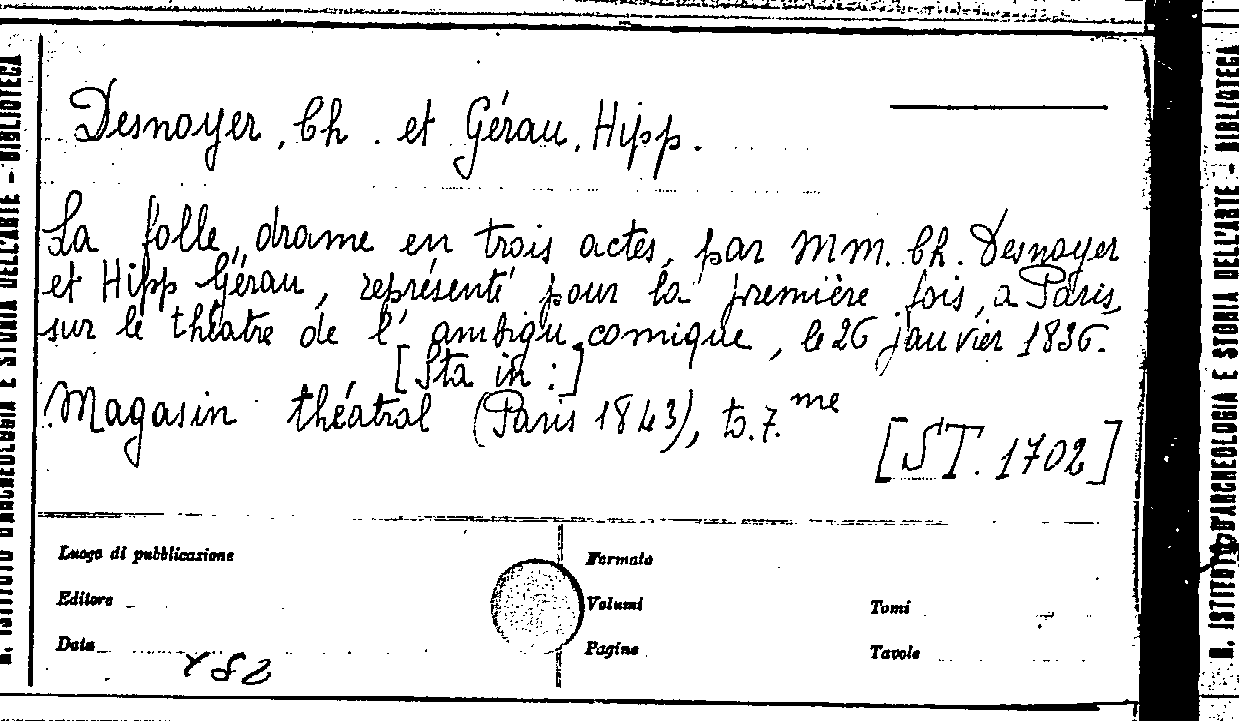 R. ISTITUTO D'ARCHEOLOGIA E STORIA DELL'ARTE - BIBLIOTECA
Desnoyer, Ch. et Gérau, Hipp.
La folle, drame en trois actes, par MM. Ch. Desnoyer
et Hipp Gérau, représenté pour la première fois, a Paris,
sur le théatre de l'ambigu comique, le 26 janvier 1836.
[Sta in:]
Magasin théatral (Paris 1843), to.7.me
[ST. 1702]
Luogo di pubblicazione
Editore
Data
Formato
Volumi
Pagine
Tomi
Tavole
R. ISTITUTO D'ARCHEOLOGIA E STORIA DELL'ARTE - BIBLIOTECA